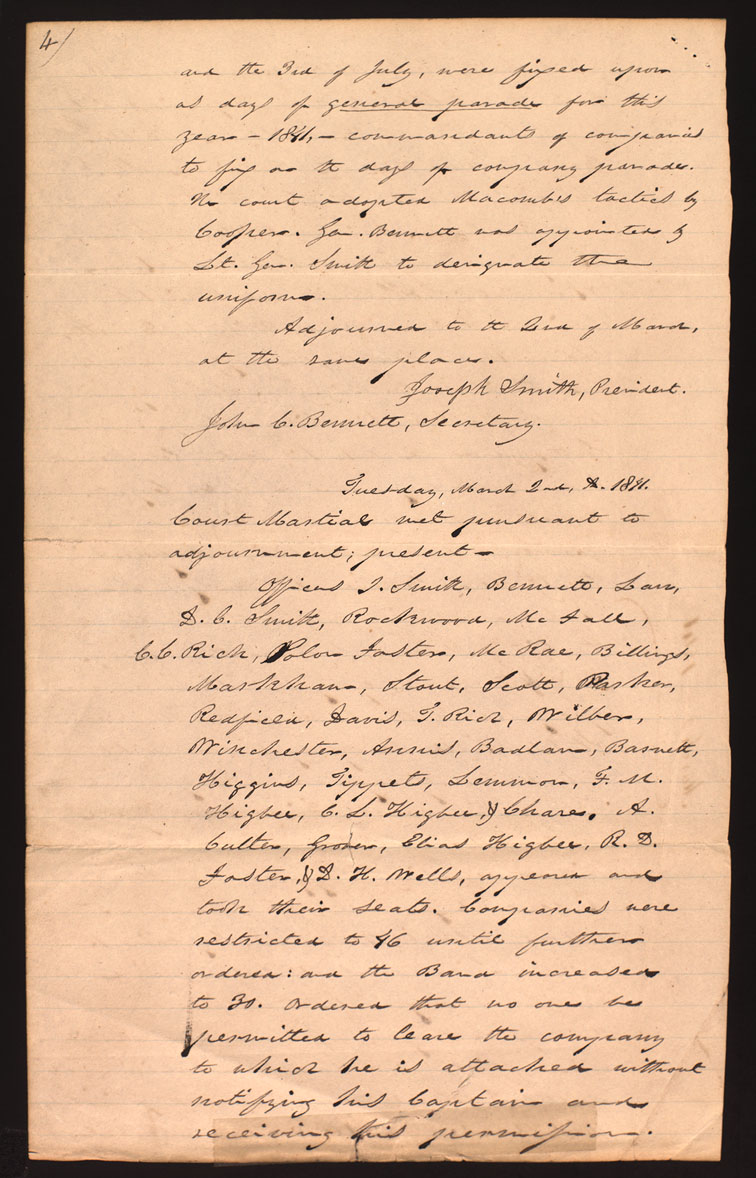 4/
and the 3rd of July, were fixed upon
as days of general parade for this
year - 1841, - commandants of companies
to fix on the days of company parade.
The court adopted Macomb's tactics by
Cooper. Gen. Bennett was appointed by
Lt. Gen. Smith to designate the
uniform.
Adjourned to the 2nd of March,
at the same place.
Joseph Smith, President.
John C. Bennett, Secretary.
Tuesday, March 2nd, A. 1841.
Court Martial met pursuant to
adjournment; present -
Officers J. Smith, Bennett, Law,
D. C. Smith, Rockwood, McFall,
C. C. Rich, Solon Foster, McRae, Billings,
Markham, Stout, Scott, Parker,
Redfield, Davis, T. Rich, Wilber,
Winchester, Annis, Badlam, Barnett,
Higgins, Tippets, Lemmon, F. M.
Higbee, C. L. Higbee, & Chase. A.
Cutler, Grover, Elias Higbee, R. D.
Foster, & D. H. Wells, appeared and
took their seats. Companies were
restricted to 46 until further
ordered: and the Band increased
to 30. Ordered that no one be
permitted to leave the company
to which he is attached without
notifying his Captain and
receiving his permission.